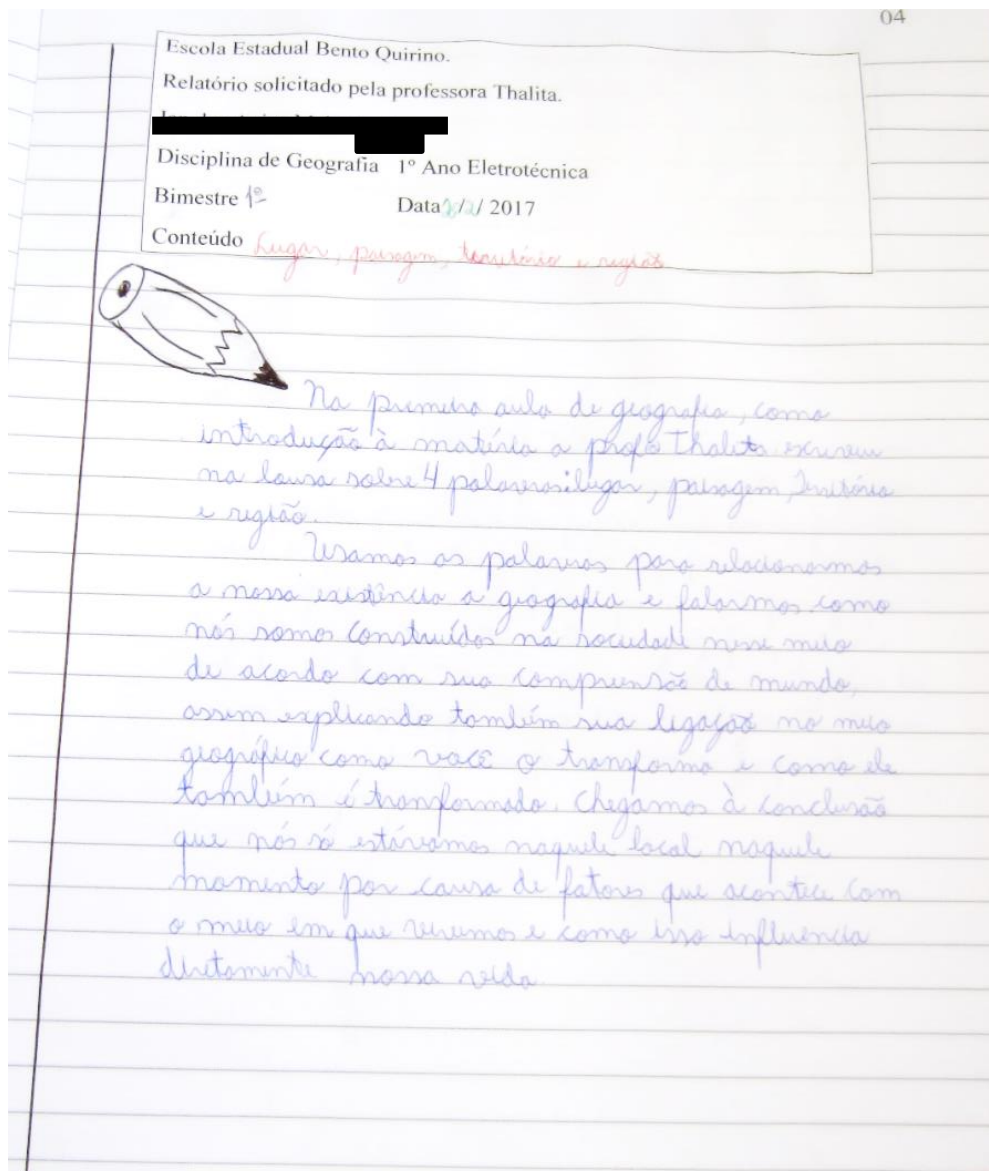 04
Escola Estadual Bento Quirino.
Relatório solicitado pela professora Thalita.
Disciplina de Geografia 1º Ano Eletrotécnica
Bimestre 1º Data /2/ 2017
Conteúdo Lugar, paisagem, território e região
Na primeira aula de geografia, como
introdução à matéria a profª Thalita escreveu
na lousa sobre 4 palavras: lugar, paisagem, território
e região.
Usamos as palavras para relacionarmos
a nossa existência a geografia e falarmos como
nós somos construídos na sociedade nesse meio
de acordo com sua compreensão de mundo,
assim explicando também sua ligação no meio
geográfico como você o transforma e como ele
também é transformado. Chegamos à conclusão
que nós só estávamos naquele local naquele
momento por causa de fatores que acontece com
o meio em que vivemos e como isso influência
diretamente nossa vida